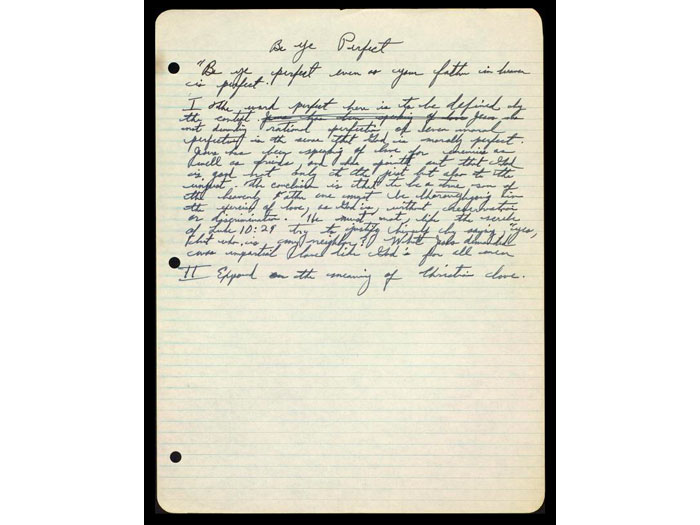 Be Ye Perfect
"Be ye perfect even as your father in heaven
is perfect."
I The word perfect here is to be defined by
the context Jesus has been speaking of love Jesus is
not demanding rational perfection of even moral
perfection in the sense that God is morally perfect.
Jesus has been speaking of love for enemies as
well as friends, and has pointed out that God
is good not only to the just but also to the
unjust. The conclusion is that to be a true son of
the heavenly Father one must be thoroughgoing in
the exercise of love, as God is, without reservation
or discrimination. He must not, like the scribe
of Luke 10:29 try to justify himself by saying "yes,
but who is my neighbor?" What Jesus demanded
was impartial love like God's for all men
II Expand on the meaning of Christian love.